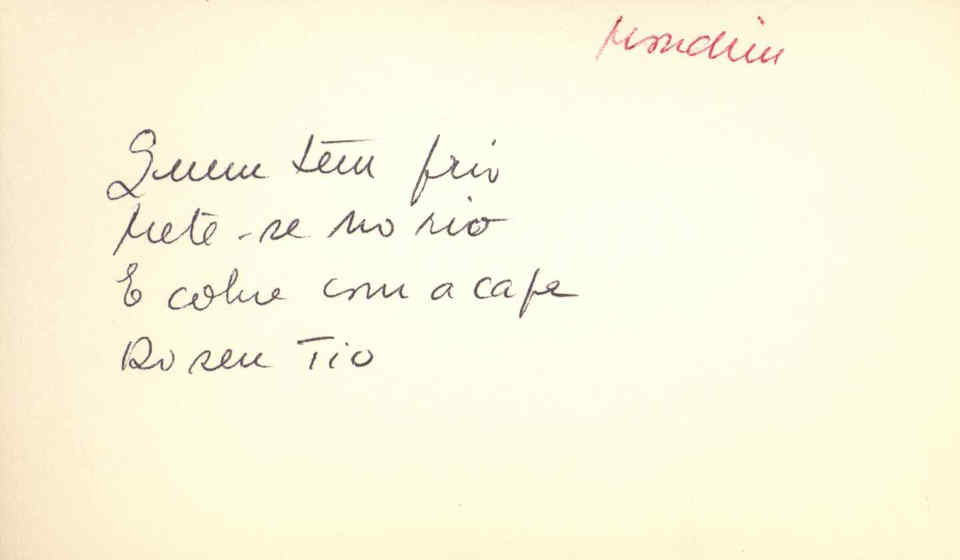 Mondim
Quem têm frio
Mete-se no rio
E cobre com a capa
Do seu Tio